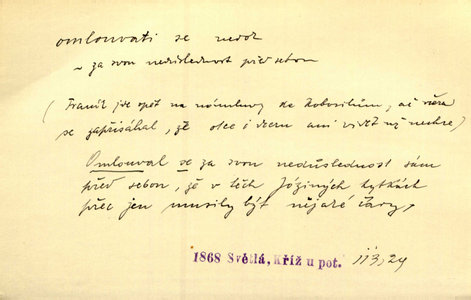 omlouvati se
~ za svou nedůslednost před sebou
(Franík jde opět na námluvy ke Kobosilům, ač včera
se zapřisáhal, že otce i dceru ani vidět už nechce)
Omlouval se za svou nedůslednost sám
před sebou, že v těch Józiných kytkách
přec jen musily být nějaké čáry,
1868 Světlá, Kříž u pot. 113, 24